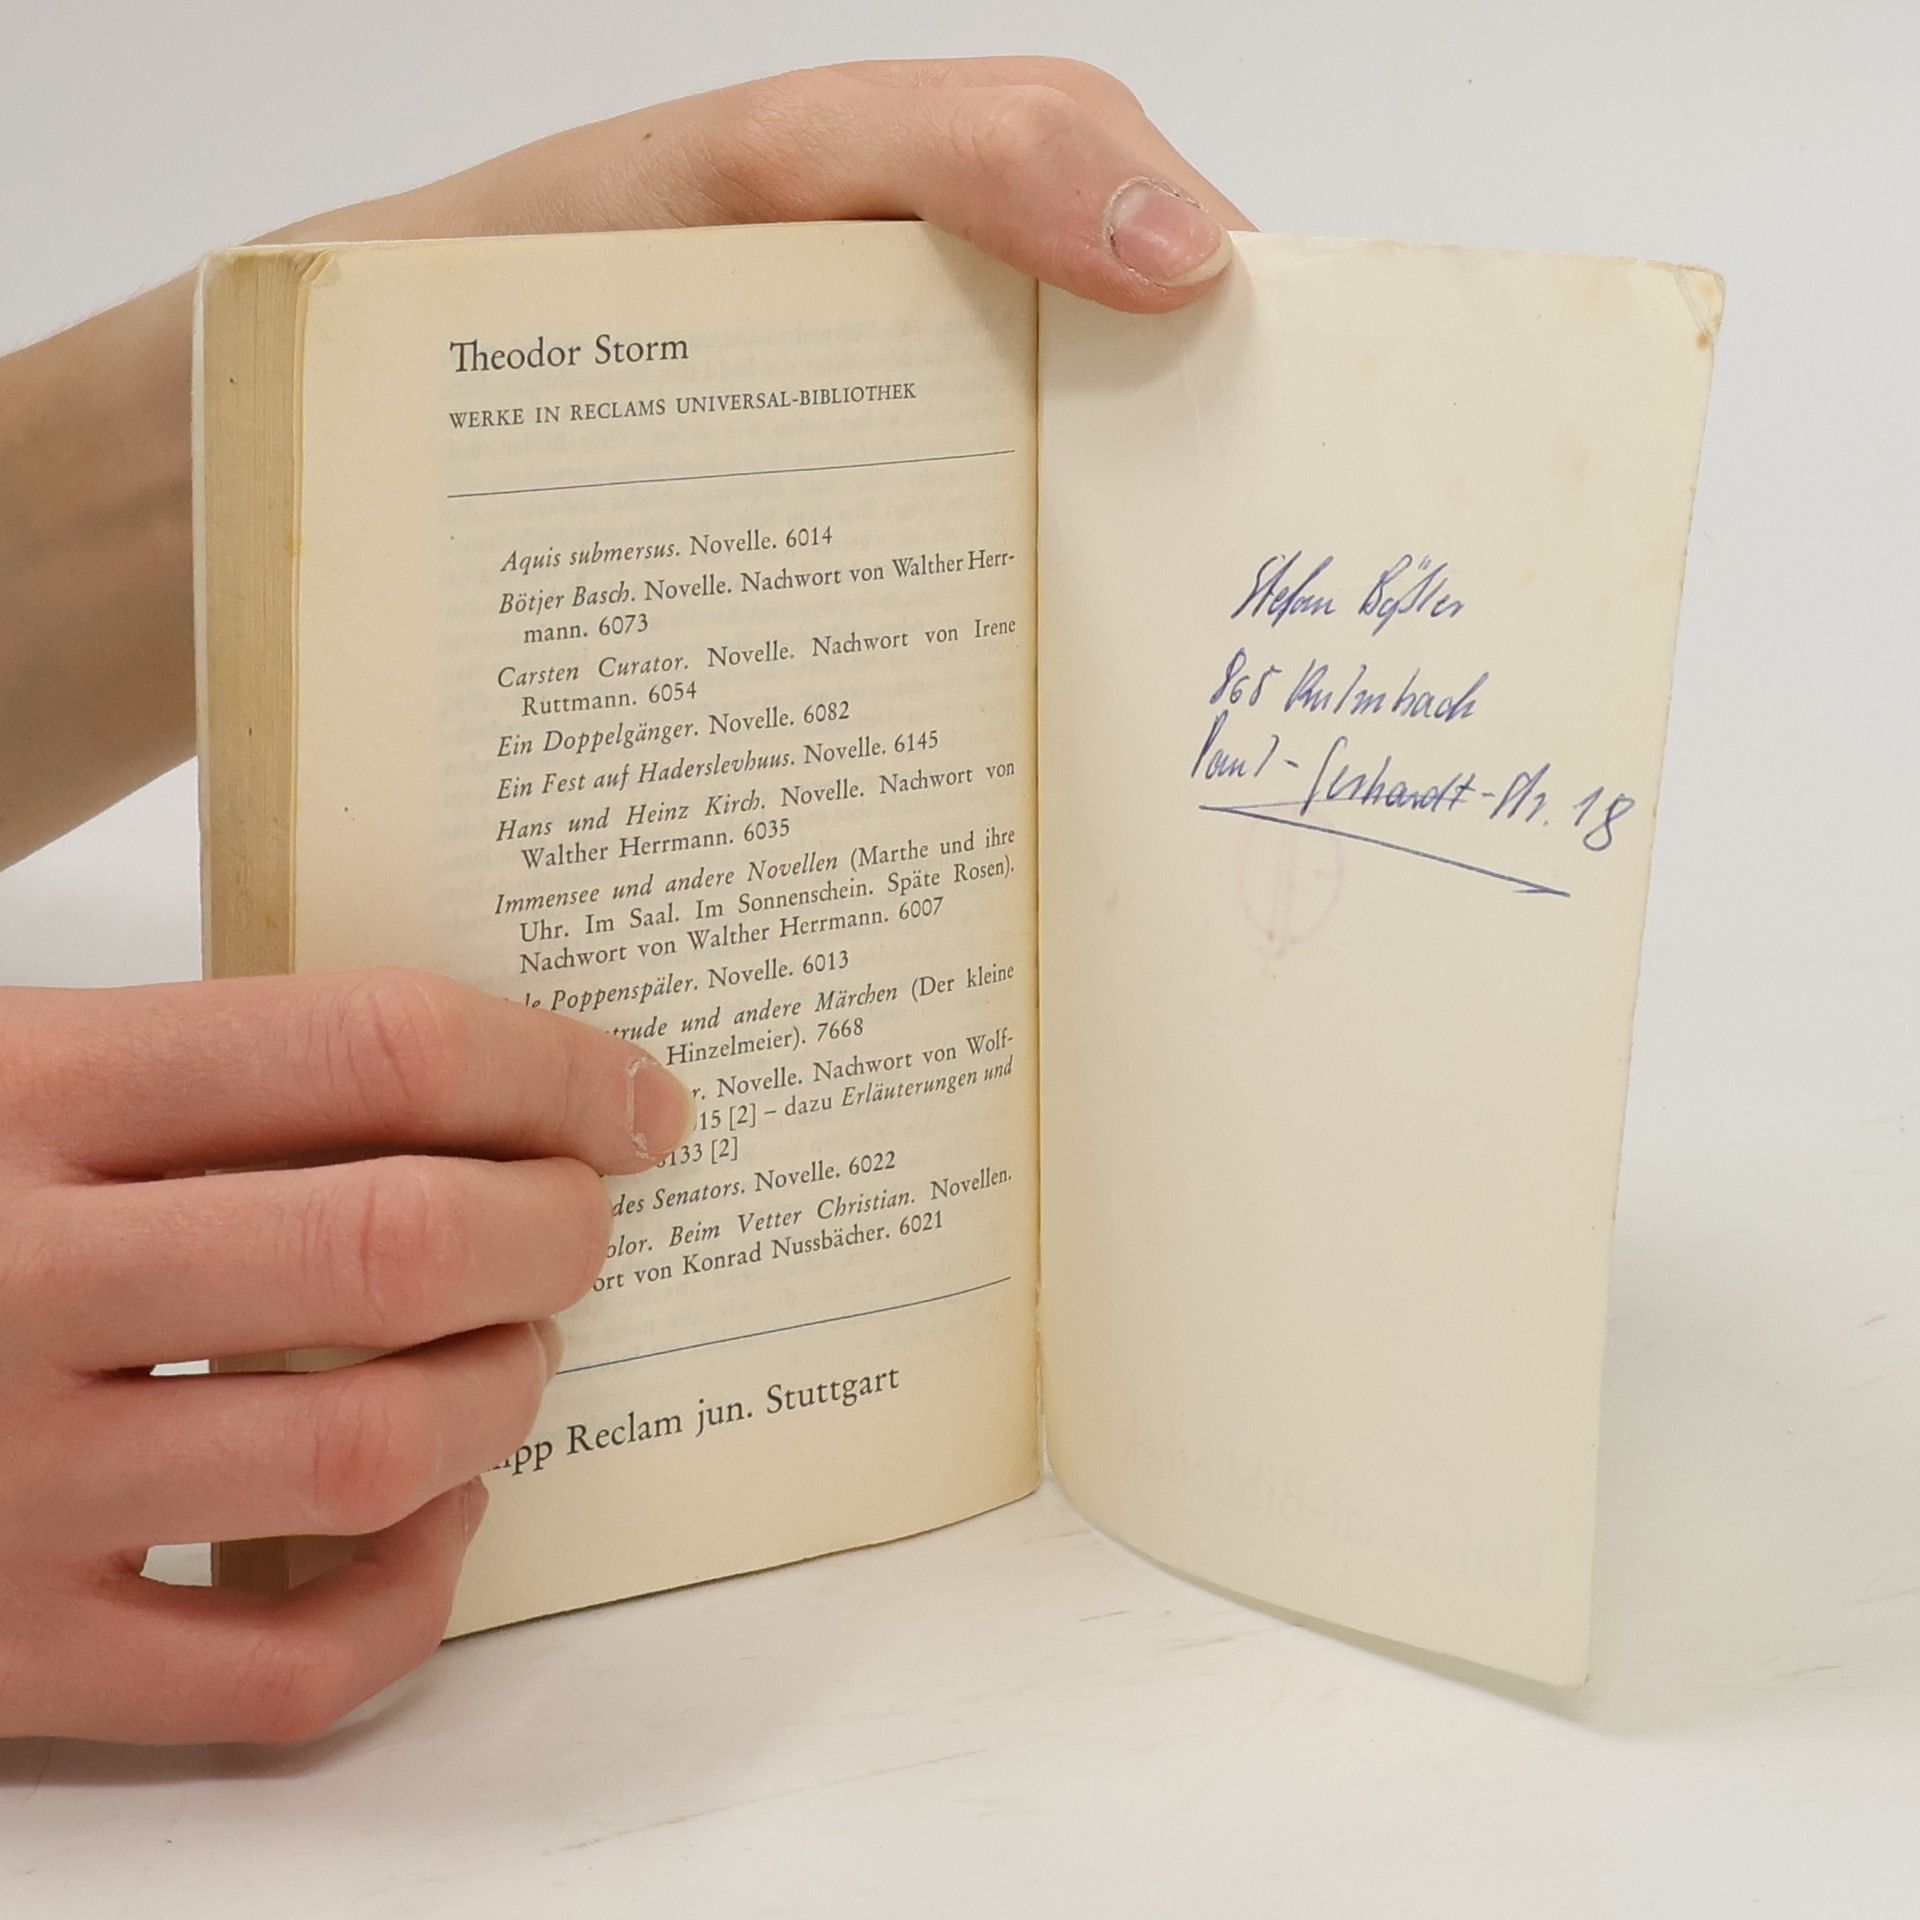 Theodor Storm
WERKE IN RECLAMS UNIVERSAL-BIBLIOTHEK
Aquis submersus. Novelle. 6014
Bötjer Basch. Novelle. Nachwort von Walther Herr-
mann. 6073
Carsten Curator. Novelle. Nachwort von Irene
Ruttmann. 6054
Ein Doppelgänger. Novelle. 6082
Ein Fest auf Haderslevhuus. Novelle. 6145
Hans und Heinz Kirch. Novelle. Nachwort von
Walther Herrmann. 6035
Immensee und andere Novellen (Marthe und ihre
Uhr. Im Saal. Im Sonnenschein. Späte Rosen).
Nachwort von Walther Herrmann. 6007
Poppenspäler. Novelle. 6013
und andere Märchen (Der kleine
Hinzelmeier). 7668
Novelle. Nachwort von Wolf-
[2] – dazu Erläuterungen und
[2]
des Senators. Novelle. 6022
Beim Vetter Christian. Novellen.
von Konrad Nussbächer. 6021
Reclam jun. Stuttgart
Stefan
865 Kulmbach
Paul-Gerhardt-Str. 18